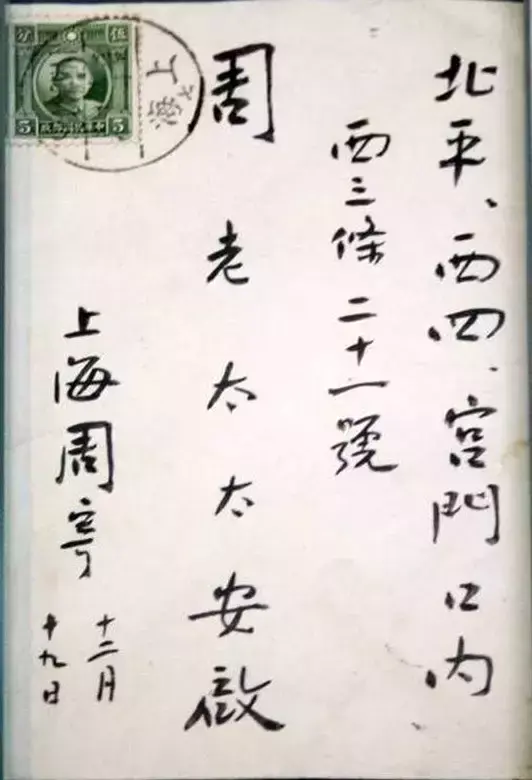 北平、西四、宮門口内
西三條二十一號
周老太太安啟
上海周寄
十二月
十九日
上海
伍分
5 5